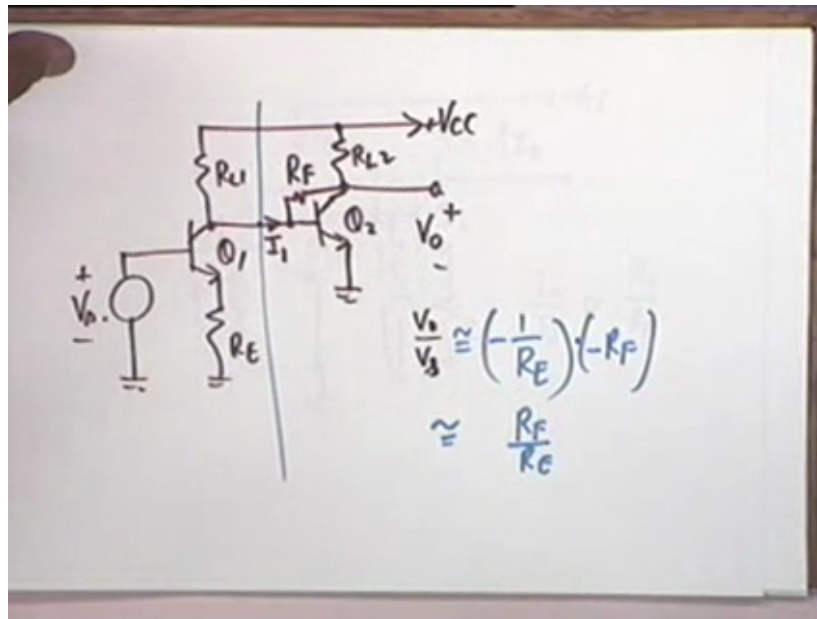 +VCC
RL1
RF
RL2
Q1
I1
Q2
+
V0
-
+
Vs.
-
RE
V0/Vs ≅ (-1/RE)·(-RF)
≅ RF/RE